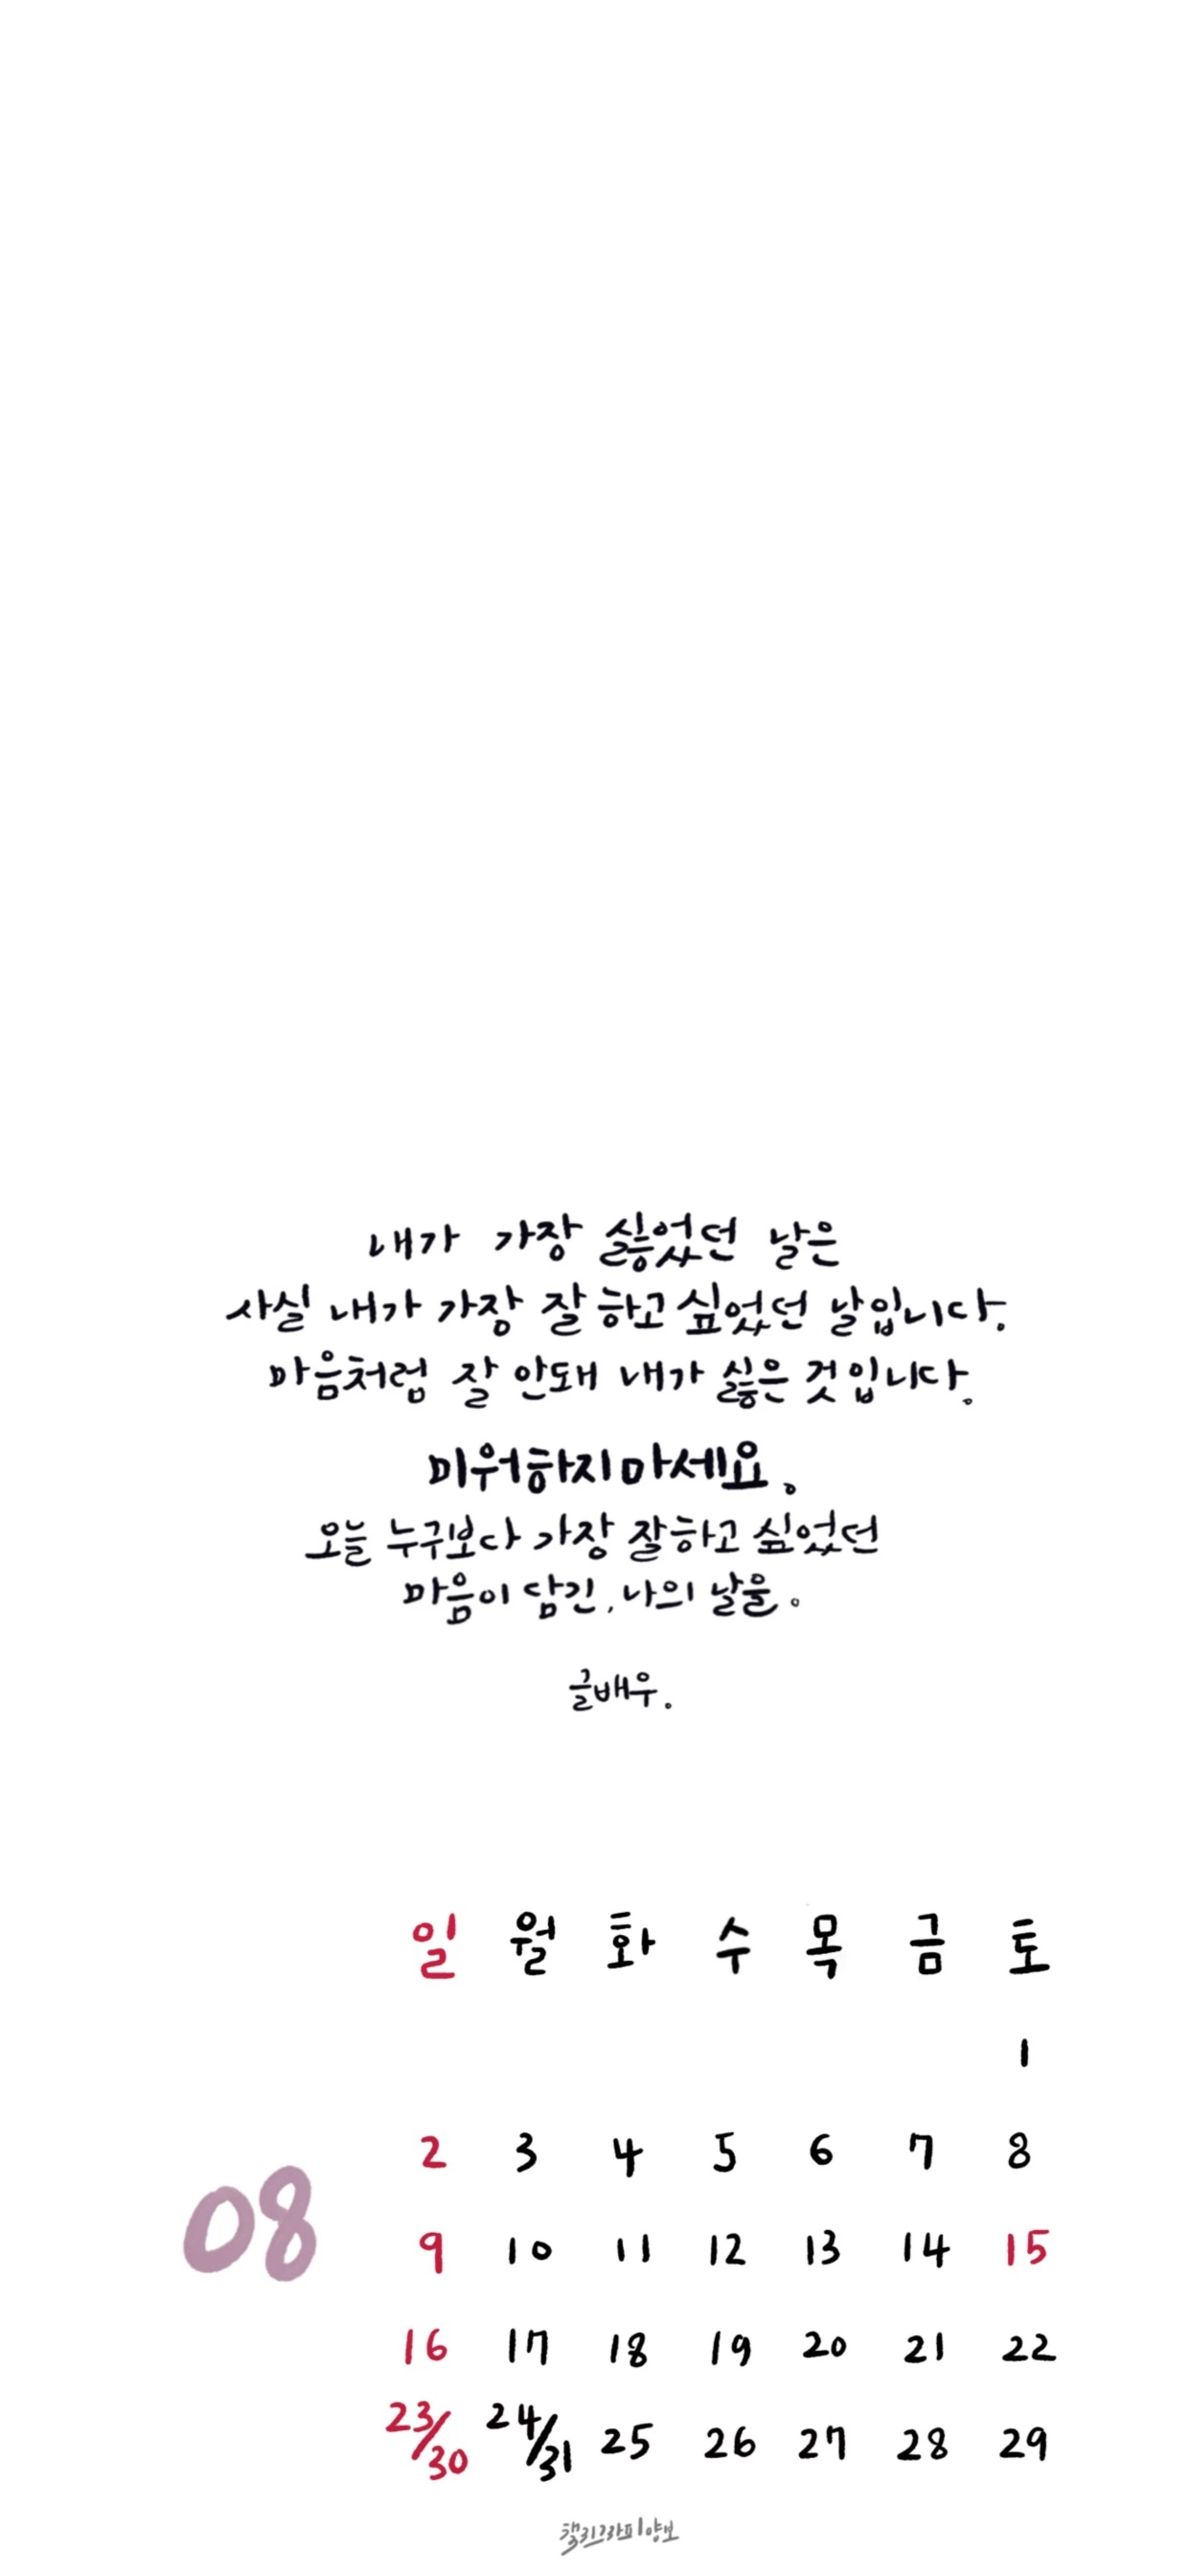 내가 가장 싫었던 날은
사실 내가 가장 잘 하고 싶었던 날입니다.
마음처럼 잘 안돼 내가 싫은 것입니다.
미워하지마세요.
오늘 누구보다 가장 잘하고 싶었던
마음이 담긴, 나의 날을.
글배우.
일 월 화 수 목 금 토
1
2 3 4 5 6 7 8
08
9 10 11 12 13 14 15
16 17 18 19 20 21 22
23/30 24/31 25 26 27 28 29